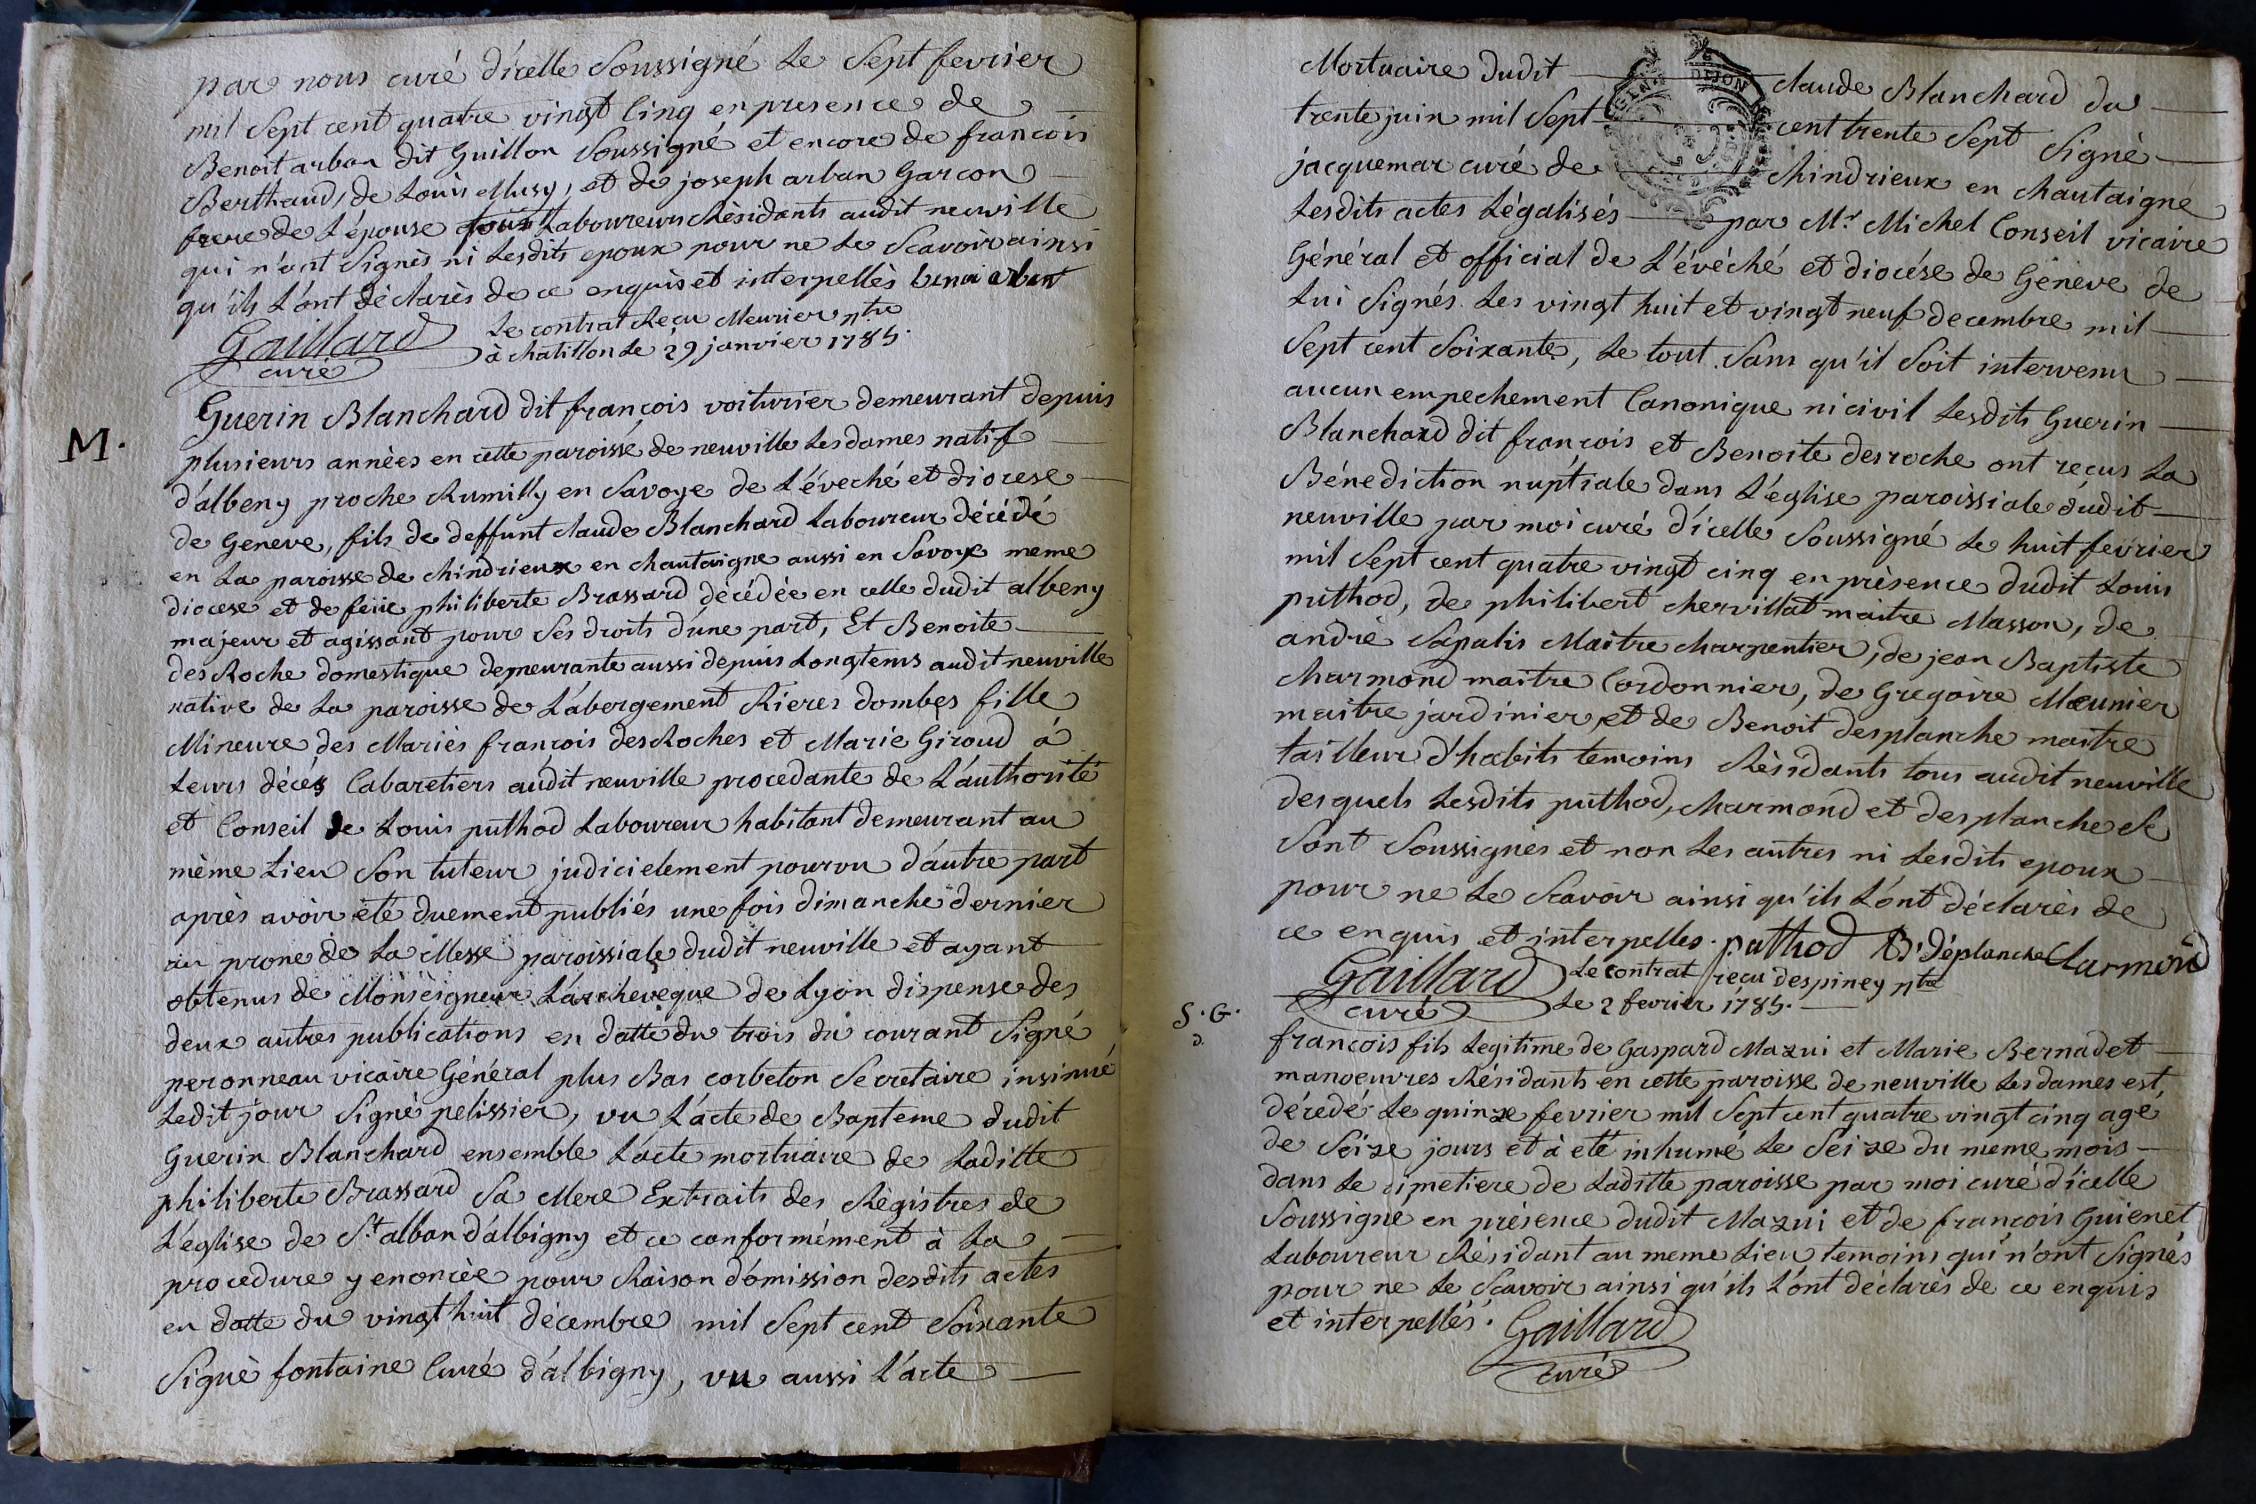 par nous curé d'icelle Soussigné Le Sept fevrier
mil Sept cent quatre vingt Cinq en presence de
Benoit arban dit Guillon Soussigné et encore de francois
Berthaud, de Louis Musy, et de joseph arban Garcon
frere de L'épouse tous Laboureurs Résidants audit neuville
qui n'ont Signés ni Lesdits epoux pour ne Le Scavoir ainsi
qu'ils L'ont déclarés de ce enquis et interpellés benoi arban
Gaillard
curé
Le contrat Reçu Meurier ntre
à chatillon Le 29 janvier 1785.
M.
Guerin Blanchard dit françois voiturier demeurant depuis
plusieurs années en cette paroisse de neuville Les dames natif
d'albeny proche Rumilly en Savoye de L'éveché et diocese
de Geneve, fils de deffunt claude Blanchard Laboureur décédé
en La paroisse de chindrieux en chautaigne aussi en Savoye meme
diocese et de feüe philiberte Brassard décédée en celle dudit albeny
majeur et agissant pour Ses droits d'une part, Et Benoite
des Roche domestique demeurante aussi depuis Longtems audit neuville
native de La paroisse de L'abergement Rieres dombes fille
Mineure des Mariés françois des Roches et Marie Giroud à
Leurs décés Cabaretiers audit neuville procedante de L'authorité
et Conseil de Louis puthod Laboureur habitant demeurant au
même Lieu Son tuteur judicielement pourvu d'autre part
après avoir été duement publiés une fois dimanche dernier
au prone de La Messe paroissiale dudit neuville et ayant
obtenus de Monseigneur L'archeveque de Lyon dispense des
deux autres publications en datte du trois du courant Signé
peronneau vicaire Général plus Bas corbeton Secretaire insinué
Ledit jour Signé pelissier, vu L'acte de Bapteme dudit
Guerin Blanchard ensemble L'acte mortuaire de Laditte
philiberte Brassard Sa Mere Extraits des Régistres de
L'église de St. alban d'albigny et ce conformément à La
procedure y enoncée pour Raison d'omission desdits actes
en datte du vingt huit décembre mil Sept cent Soixante
Signé fontaine Curé d'albigny, vu aussi L'acte
Mortuaire dudit claude Blanchard du
trente juin mil Sept cent trente Sept Signé
jacquemar curé de chindrieux en chautaigne
Lesdits actes Légalisés par Mr. Michel Conseil vicaire
Général et official de L'évêché et diocése de Géneve de
Lui Signés Les vingt huit et vingt neuf decembre mil
Sept cent Soixante, Le tout Sans qu'il Soit intervenu
aucun empechement Canonique ni civil Lesdits Guerin
Blanchard dit francois et Benoite desroche ont reçus La
Bénediction nuptiale dans L'église paroissiale dudit
neuville par moi curé d'icelle Soussigné Le huit fevrier
mil Sept cent quatre vingt cinq en présence dudit Louis
puthod, de philibert chervillat maitre Masson, de
andré Sapalis Maitre charpentier, de jean Baptiste
charmond maitre Cordonnier, de Gregoire Meunier
maitre jardinier, et de Benoit desplanche maitre
tailleur d'habits temoins Résidants tous audit neuville
desquels Lesdits puthod, charmond et desplanche Se
Sont Soussignés et non Les autres ni Lesdits epoux
pour ne Le Scavoir ainsi qu'ils L'ont déclarés de
ce enquis et interpelles. puthod B. déplanche Charmond
Gaillard
curé
Le contrat reçu Despiney ntre
Le 2 fevrier 1785.
S. G.
D.
francois fils Legitime de Gaspard Mazui et Marie Bernadet
manoeuvres Résidants en cette paroisse de neuville Les dames est
décedé Le quinze fevrier mil Sept cent quatre vingt cinq agé
de Seize jours et à eté inhumé Le Seize du meme mois
dans Le cimetiere de Laditte paroisse par moi curé d'icelle
Soussigné en présence dudit Mazui et de françois Guienet
Laboureur Résidant au meme Lieu temoins qui n'ont Signés
pour ne Le Scavoir ainsi qu'ils L'ont déclarés de ce enquis
et interpellés. Gaillard
curé